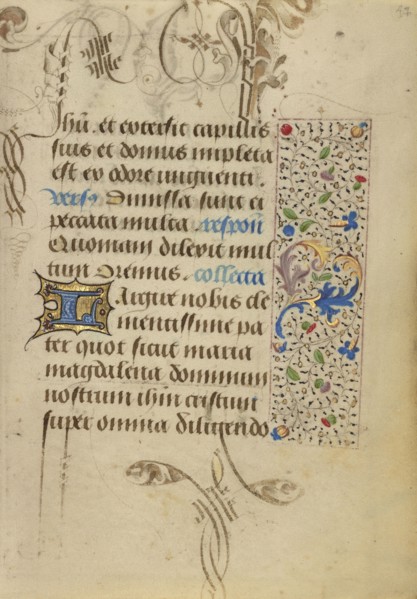 Jhu. et extersit capillis
suis et domus impleta
est ex odore unguenti.
vers9 Dimissa sunt ei
peccata multa. respon
Quoniam dilexit mul
tum Oremus. collecta
Largire nobis cle
mentissime pa
ter quot sicut maria
magdalena dominum
nostrum ihm cristum
super omnia diligendo